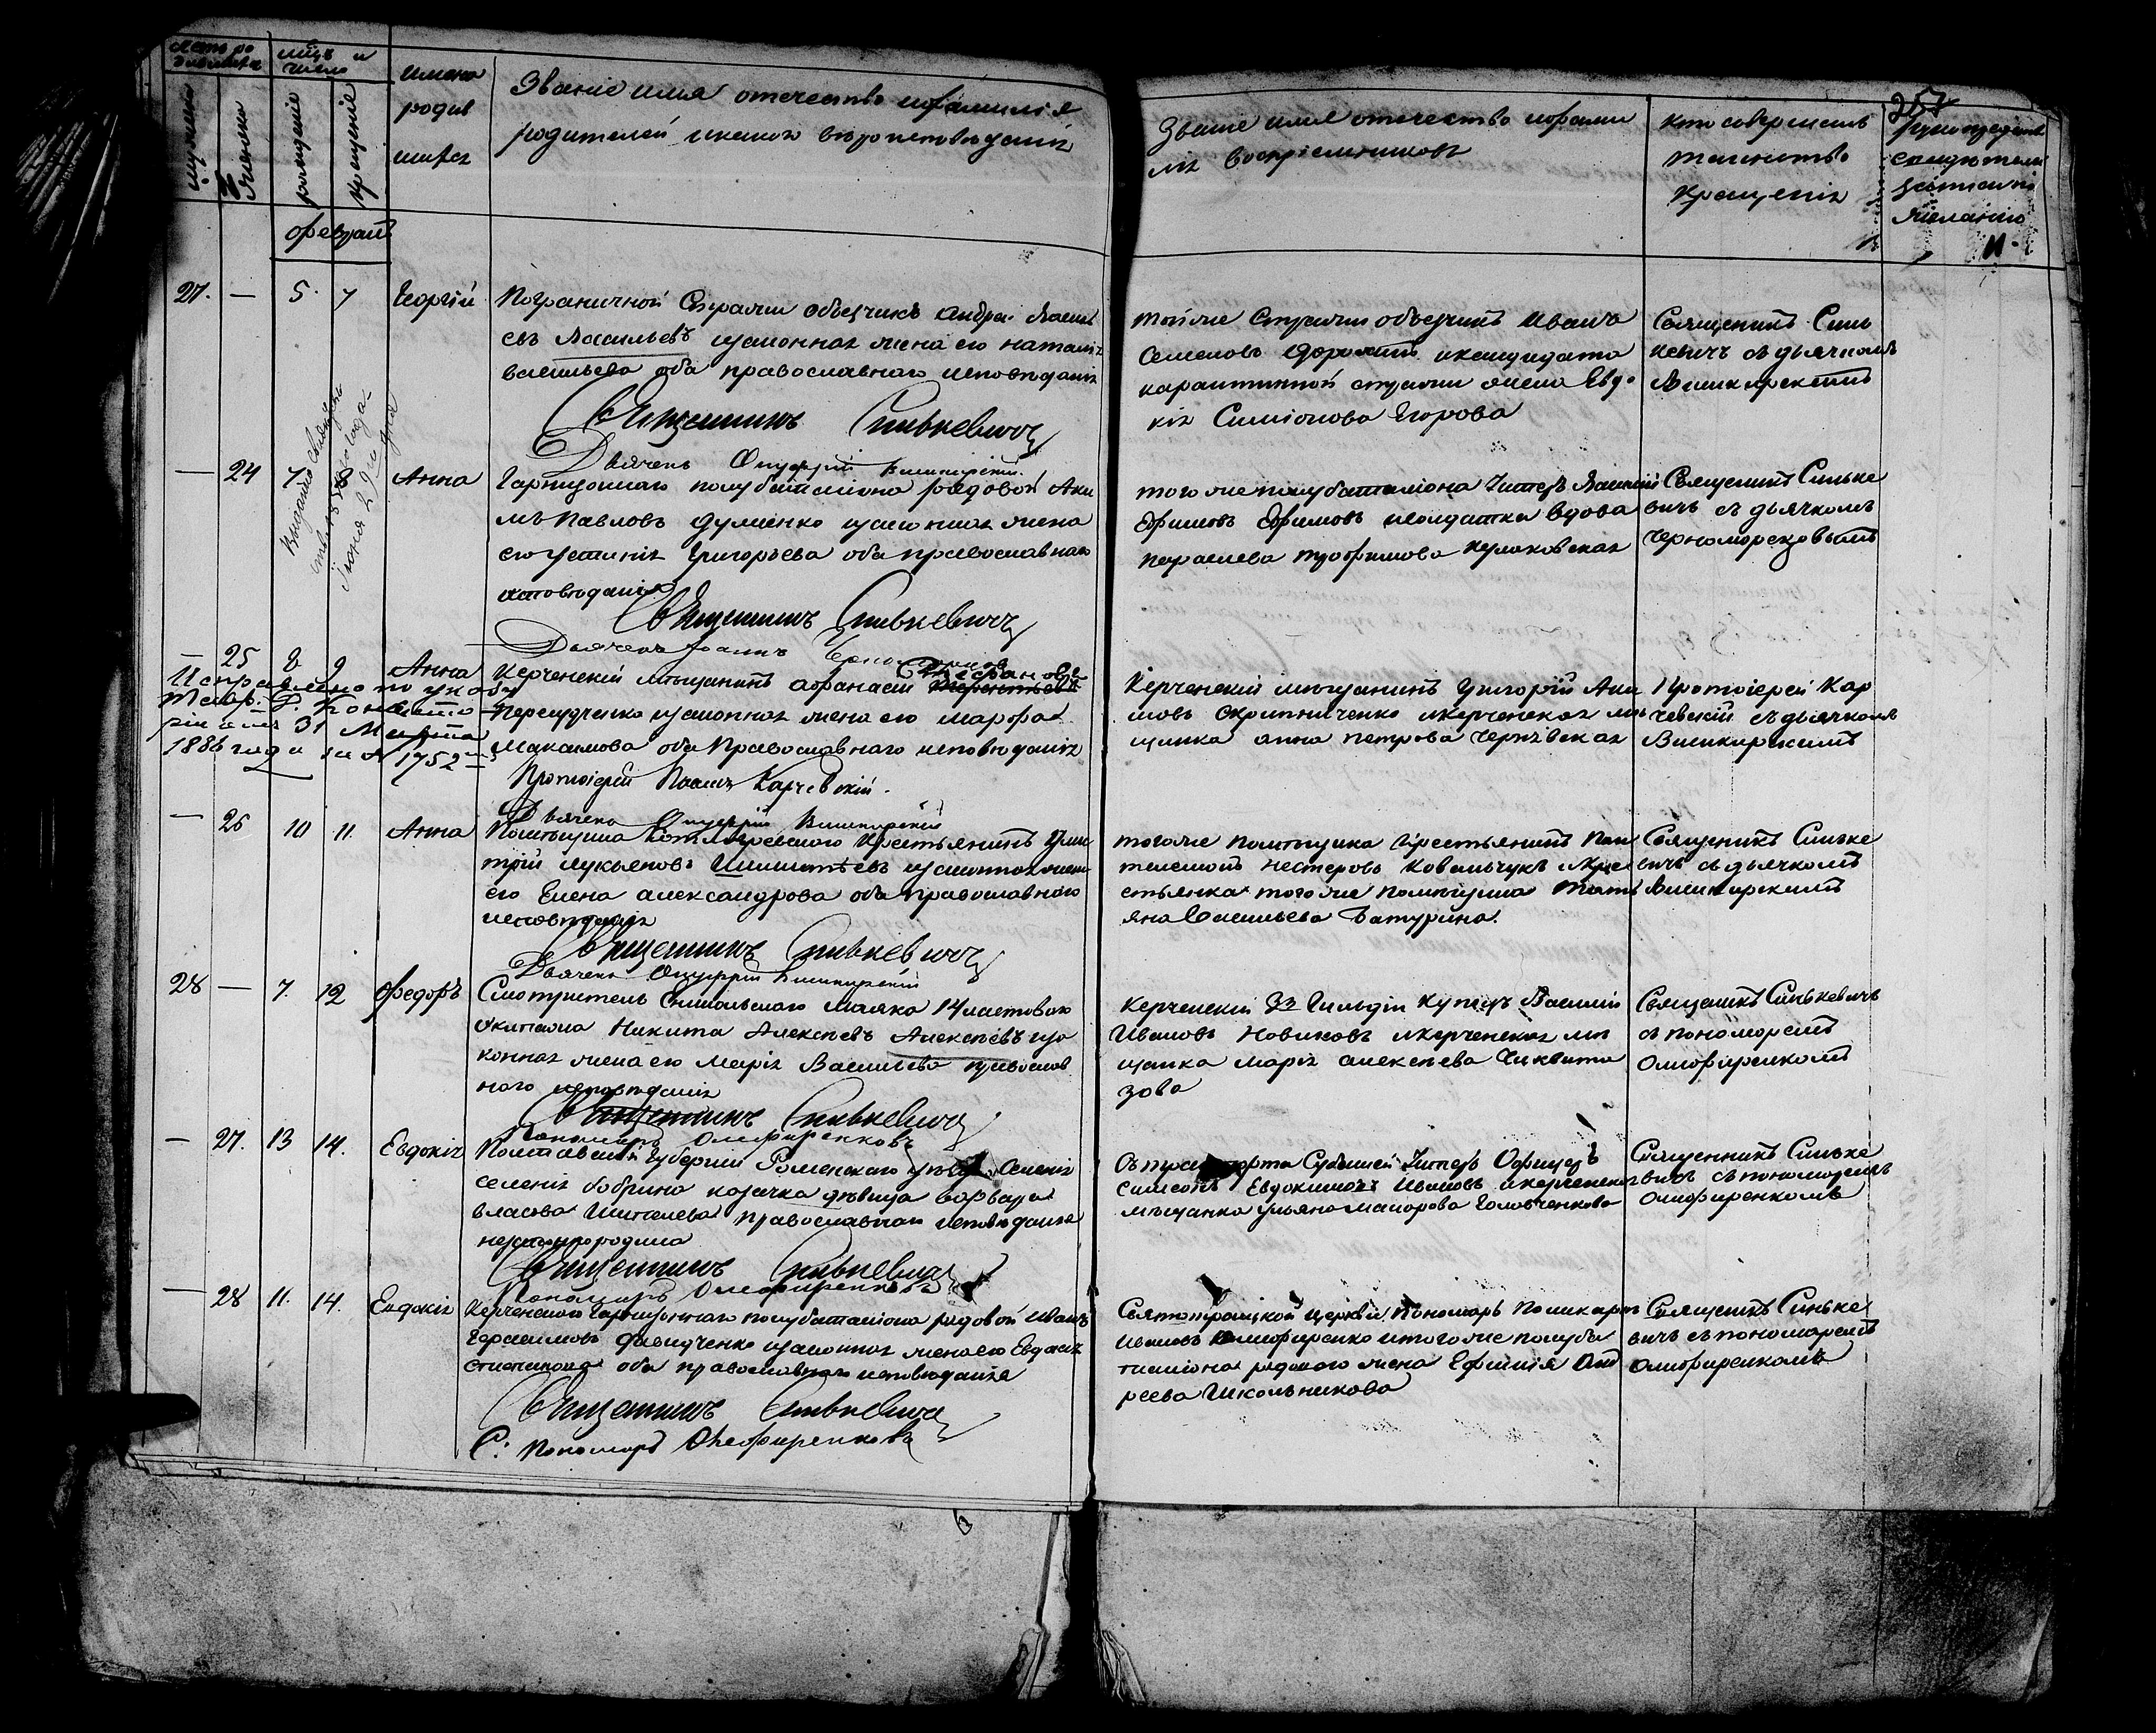 мѣсяцъ и
число
мужеска
женска
рожденіе
крещеніе
имена
родив
шихся
Званіе имя отечество ифамилія
родителей икакого вѣроисповѣданія
Званіе имя отечество ифами
лія воспріемниковъ
кто совершалъ
таинство
крещенія
257
рукоприкладств
свидѣтелей
записи по
желанію
февраль
27. — 5. 7 Георгій
Пограничной Стражи объезчикъ Андре Васил
евъ Васильевъ изаконная жена его наталія
васильева оба православнаго исповѣданія
Священникъ Синькевичъ
Дьячекъ Онуфрій Вишнирскій.
тойже Стражи объезчикъ Иванъ
Семеновъ икандидата
карантинной стражи жена Евдо
кія Симіонова Егорова
Священникъ Синь
кевичъ съ дьячкомъ
Вишнирскимъ
Выдано
Іюня 2 дня
— 24 7 Анна
Гарнизоннаго полубаталіона рядовой Аки
мъ Павловъ Думенко изаконная жена
его Устинія Григорьева оба православнаго
исповѣданія
Священникъ Синькевичъ
Дьячекъ Іоаннъ
тогоже полубаталіона Унтеръ Василій
Ефимовъ Ефимовъ исолдатка вдова
параскева трофимова кулаковская
Священникъ Синьке
вичъ съ дьячкомъ
Черноморцовымъ
— 25 8 9 Анна
Исправлено по указу
Тавр. Д. Консисто
ріи отъ 31 Марта
1886 года за № 1752
Керченскій мѣщанинъ афанасій Стефановъ
Пересудченко изаконная жена его марфа
Максимова оба Православнаго исповѣданія
Протоіерей Іоаннъ Карчевскій.
Дьячекъ Онуфрій Вишнирскій
Керченскій мѣщанинъ Григорій Аки
мовъ Скрипниченко икерченская мѣ
щанка анна петрова Чернѣвская
Протоіерей Кар
чевскій съ дьячкомъ
Вишнирскимъ
— 26 10 11. Анна
Помѣщика Котляревскаго Крестьянинъ Дми
трій лукьяновъ изаконная жена
его Елена александрова оба православнаго
исповѣданія
Священникъ Синькевичъ
Дьячекъ Онуфрій Вишнирскій
тогоже помѣщика Крестьянинъ Пан
телемонъ нестеровъ Ковальчукъ икре
стьянка тогоже помѣщика Тать
яна Васильева Батурина.
Священникъ Синьке
вичъ съ дьячкомъ
Вишнирскимъ
28 — 7. 12 Федоръ
Смотритель Еникольскаго Маяка 14 ластоваго
Экипажа Никита Алексѣевъ Алексѣевъ иза
конная жена его Марія Васильева православ
наго исповѣданія
Священникъ Синькевичъ
Пономарь Олифиренковъ
Керченскій 3й Гильдіи Купецъ Василій
Ивановъ Новиковъ икерченская мѣ
щанка марія алексѣева Чиквита
зова
Священникъ Синькевичъ
съ пономоремъ
Олифиренкомъ
— 27. 13 14. Евдокія
Полтавской Губерніи Роменскаго уѣзда Селенія
селенія бобрика козачка дѣвица варвара
власова Шиталева православнаго исповѣданія
незаконнородила
Священникъ Синькевичъ
Пономарь Олифиренковъ
Съ транспорта Субашей Унтеръ Офицеръ
Симеонъ Евдокимовъ Ивановъ икерченская
мѣщанка ульяна маиорова Головченкова
Священникъ Синьке
вичъ съ пономоремъ
Олифиренкомъ
— 28 11. 14. Евдокія
Керченскаго Гарнизоннаго полубаталіона рядовой Иванъ
Герасимовъ Давидченко изаконная жена его Евдокія
Степанова оба православнаго исповѣданія
Священникъ Синькевичъ
С: Пономарь Олефиренковъ
Святотроицкой церкви Пономарь Поликарпъ
Ивановъ Олифиренко итогоже полуба
таліона рядоваго жена Ефимія Анд
реева Школьникова
Священникъ Синьке
вичъ съ пономаремъ
Олифиренкомъ